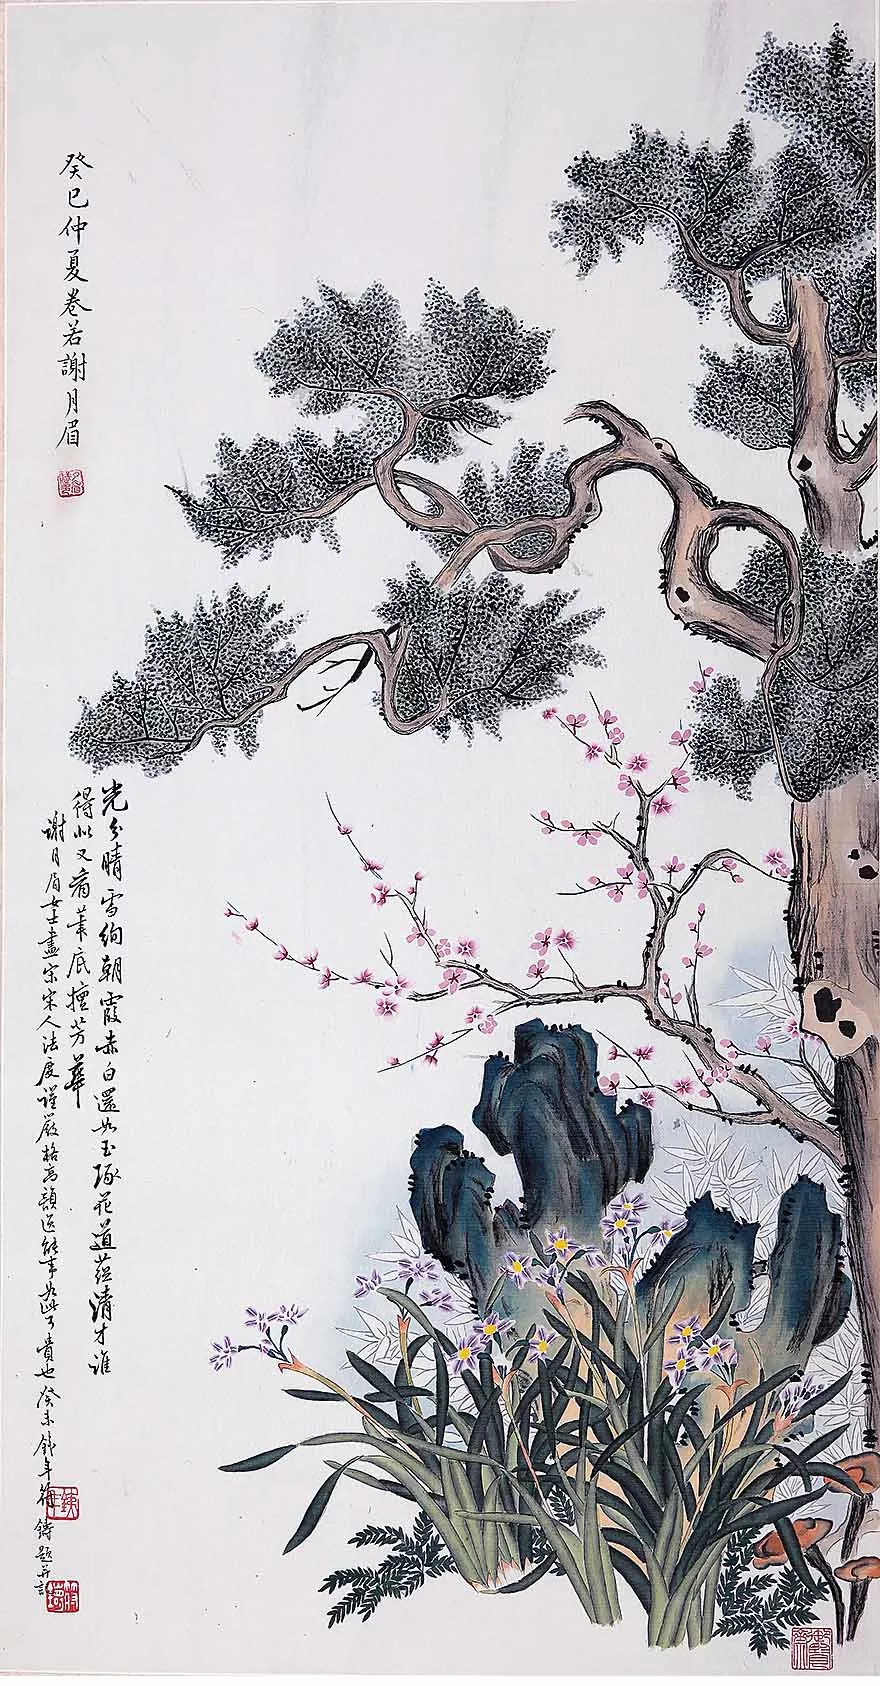 癸巳仲夏卷若謝月眉
光分晴雪絢朝霞赤白還如玉琢花道蕴清才誰
得似又看筆底擅芳華
謝月眉女士盡宗宋人法度謹嚴格高韻逸能事如此可貴也癸未銕年符鑄題并記